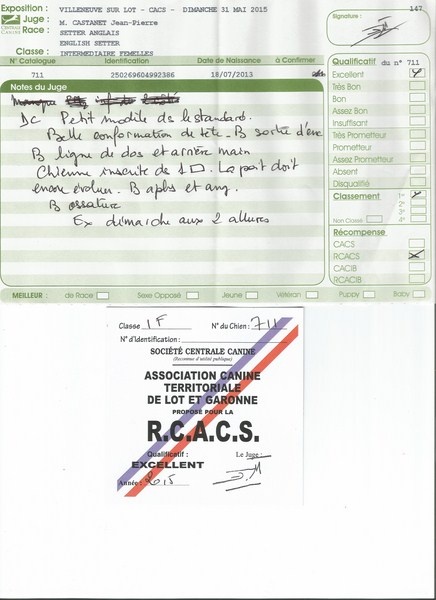 Exposition : VILLENEUVE SUR LOT - CACS - DIMANCHE 31 MAI 2015
Juge : M. CASTANET Jean-Pierre
Race : SETTER ANGLAIS
ENGLISH SETTER
Classe : INTERMEDIAIRE FEMELLES
Signature :
147
N° Catalogue Identification Date de Naissance à Confirmer
711 250269604992386 18/07/2013
Notes du Juge
DC Petit modèle ds le standard.
Belle conformation de tête - B sortie d'enc
B ligne de dos et arrière main
Chienne inscrite de 1 □. Le poil doit
encore évoluer. B aplbs et ang.
B ossature
Ex démarche aux 2 allures
Qualificatif du n° 711
Excellent
Très Bon
Bon
Assez Bon
Insuffisant
Très Prometteur
Prometteur
Assez Prometteur
Absent
Disqualifié
Classement
1 2 3 4
Non Classé
Récompense
CACS
RCACS
CACIB
RCACIB
MEILLEUR : de Race Sexe Opposé Jeune Vétéran Puppy Baby
Classe 1 F N° du Chien : 711
N° d'identification :
SOCIÉTÉ CENTRALE CANINE
(Reconnue d'utilité publique)
ASSOCIATION CANINE
TERRITORIALE
DE LOT ET GARONNE
PROPOSÉ POUR LA
R.C.A.C.S.
Qualificatif : Le Juge :
EXCELLENT
Année : 2015